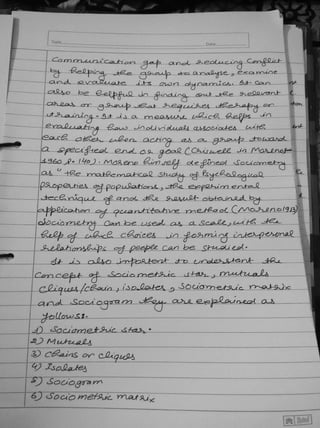 Communication gap and reducing Conflict
by helping the group to analyse, examine
and evaluate its own dynamics. It can
also be helpful in finding out the relevant
areas or group that requires therapy or
training. It is a measure which helps in
evaluating how individuals associates with
each other when acting as a group toward
a specified end or goal (Criswell in Moreno
1960, p. 140). Moreno himself defined Sociometry
as "the mathematical study of Psychological
properties of populations, the exprtimental
technique of and the result obtained by
application of quantitative method (Moreno 1953)
Sociometry can be used as a scale, with the
help of which choices in forming interpersonal
relationships of people can be studied.
It is also important to understant the
Concept of Sociometric star, mutuals
cliques/chain, isolates, Sociometric matrix
and Sociogram they are explained as
follows:
1) Sociometric star.
2) Mutuals
3) Chains or cliques
4) Isolates
5) Sociogram
6) Sociometric matrix